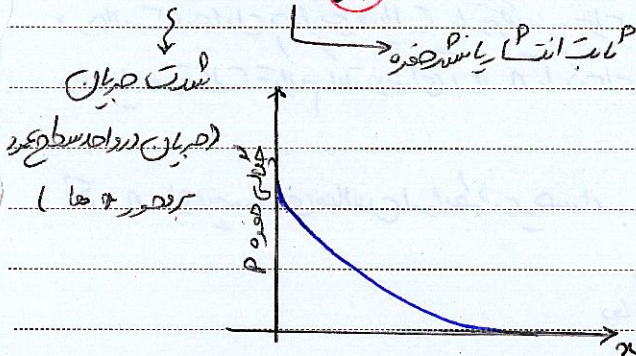 ثابت انتشار یا نشر حفره
شدت جریان
(جریان در واحد سطح عمود
بر محور x ها)
چگالی حفره P
x